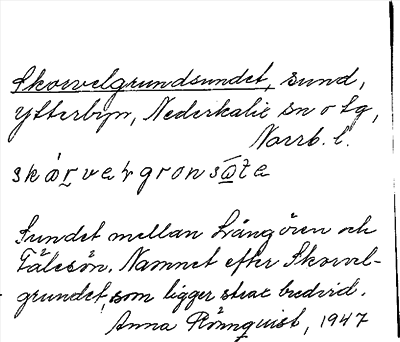 Skorvelgrundsundet, sund,
Ytterbyn, Nederkalix sn o tg,
Norrb. l.
skårvelgronsöta
Sundet mellan Långören och
Tälesön. Namnet efter Skorvel-
grundet, som ligger strax bredvid.
Anna Rönnquist, 1947